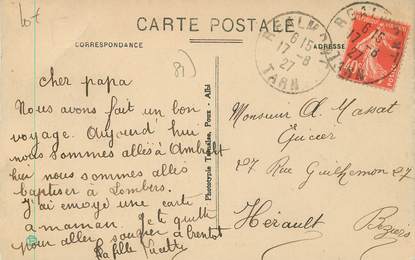 lot
CARTE POSTALE
CORRESPONDANCE
ADRESSE
81
REALMONT
6 15
17 - 8
27
TARN
REALMONT
6 15
17 - 8
27
TARN
Cher papa
Nous avons fait un bon
voyage. Aujourd'hui
nous sommes allés à
hier nous sommes allés
baptiser à Lombers.
J'ai envoyé une carte
a maman. Je te quitte
pour aller souper a bientot
Ta fille Lucette
Phototypie Poux - Albi
Monsieur A. Massat
Epicier
27 Rue Guilhemon 27
Béziers
Hérault